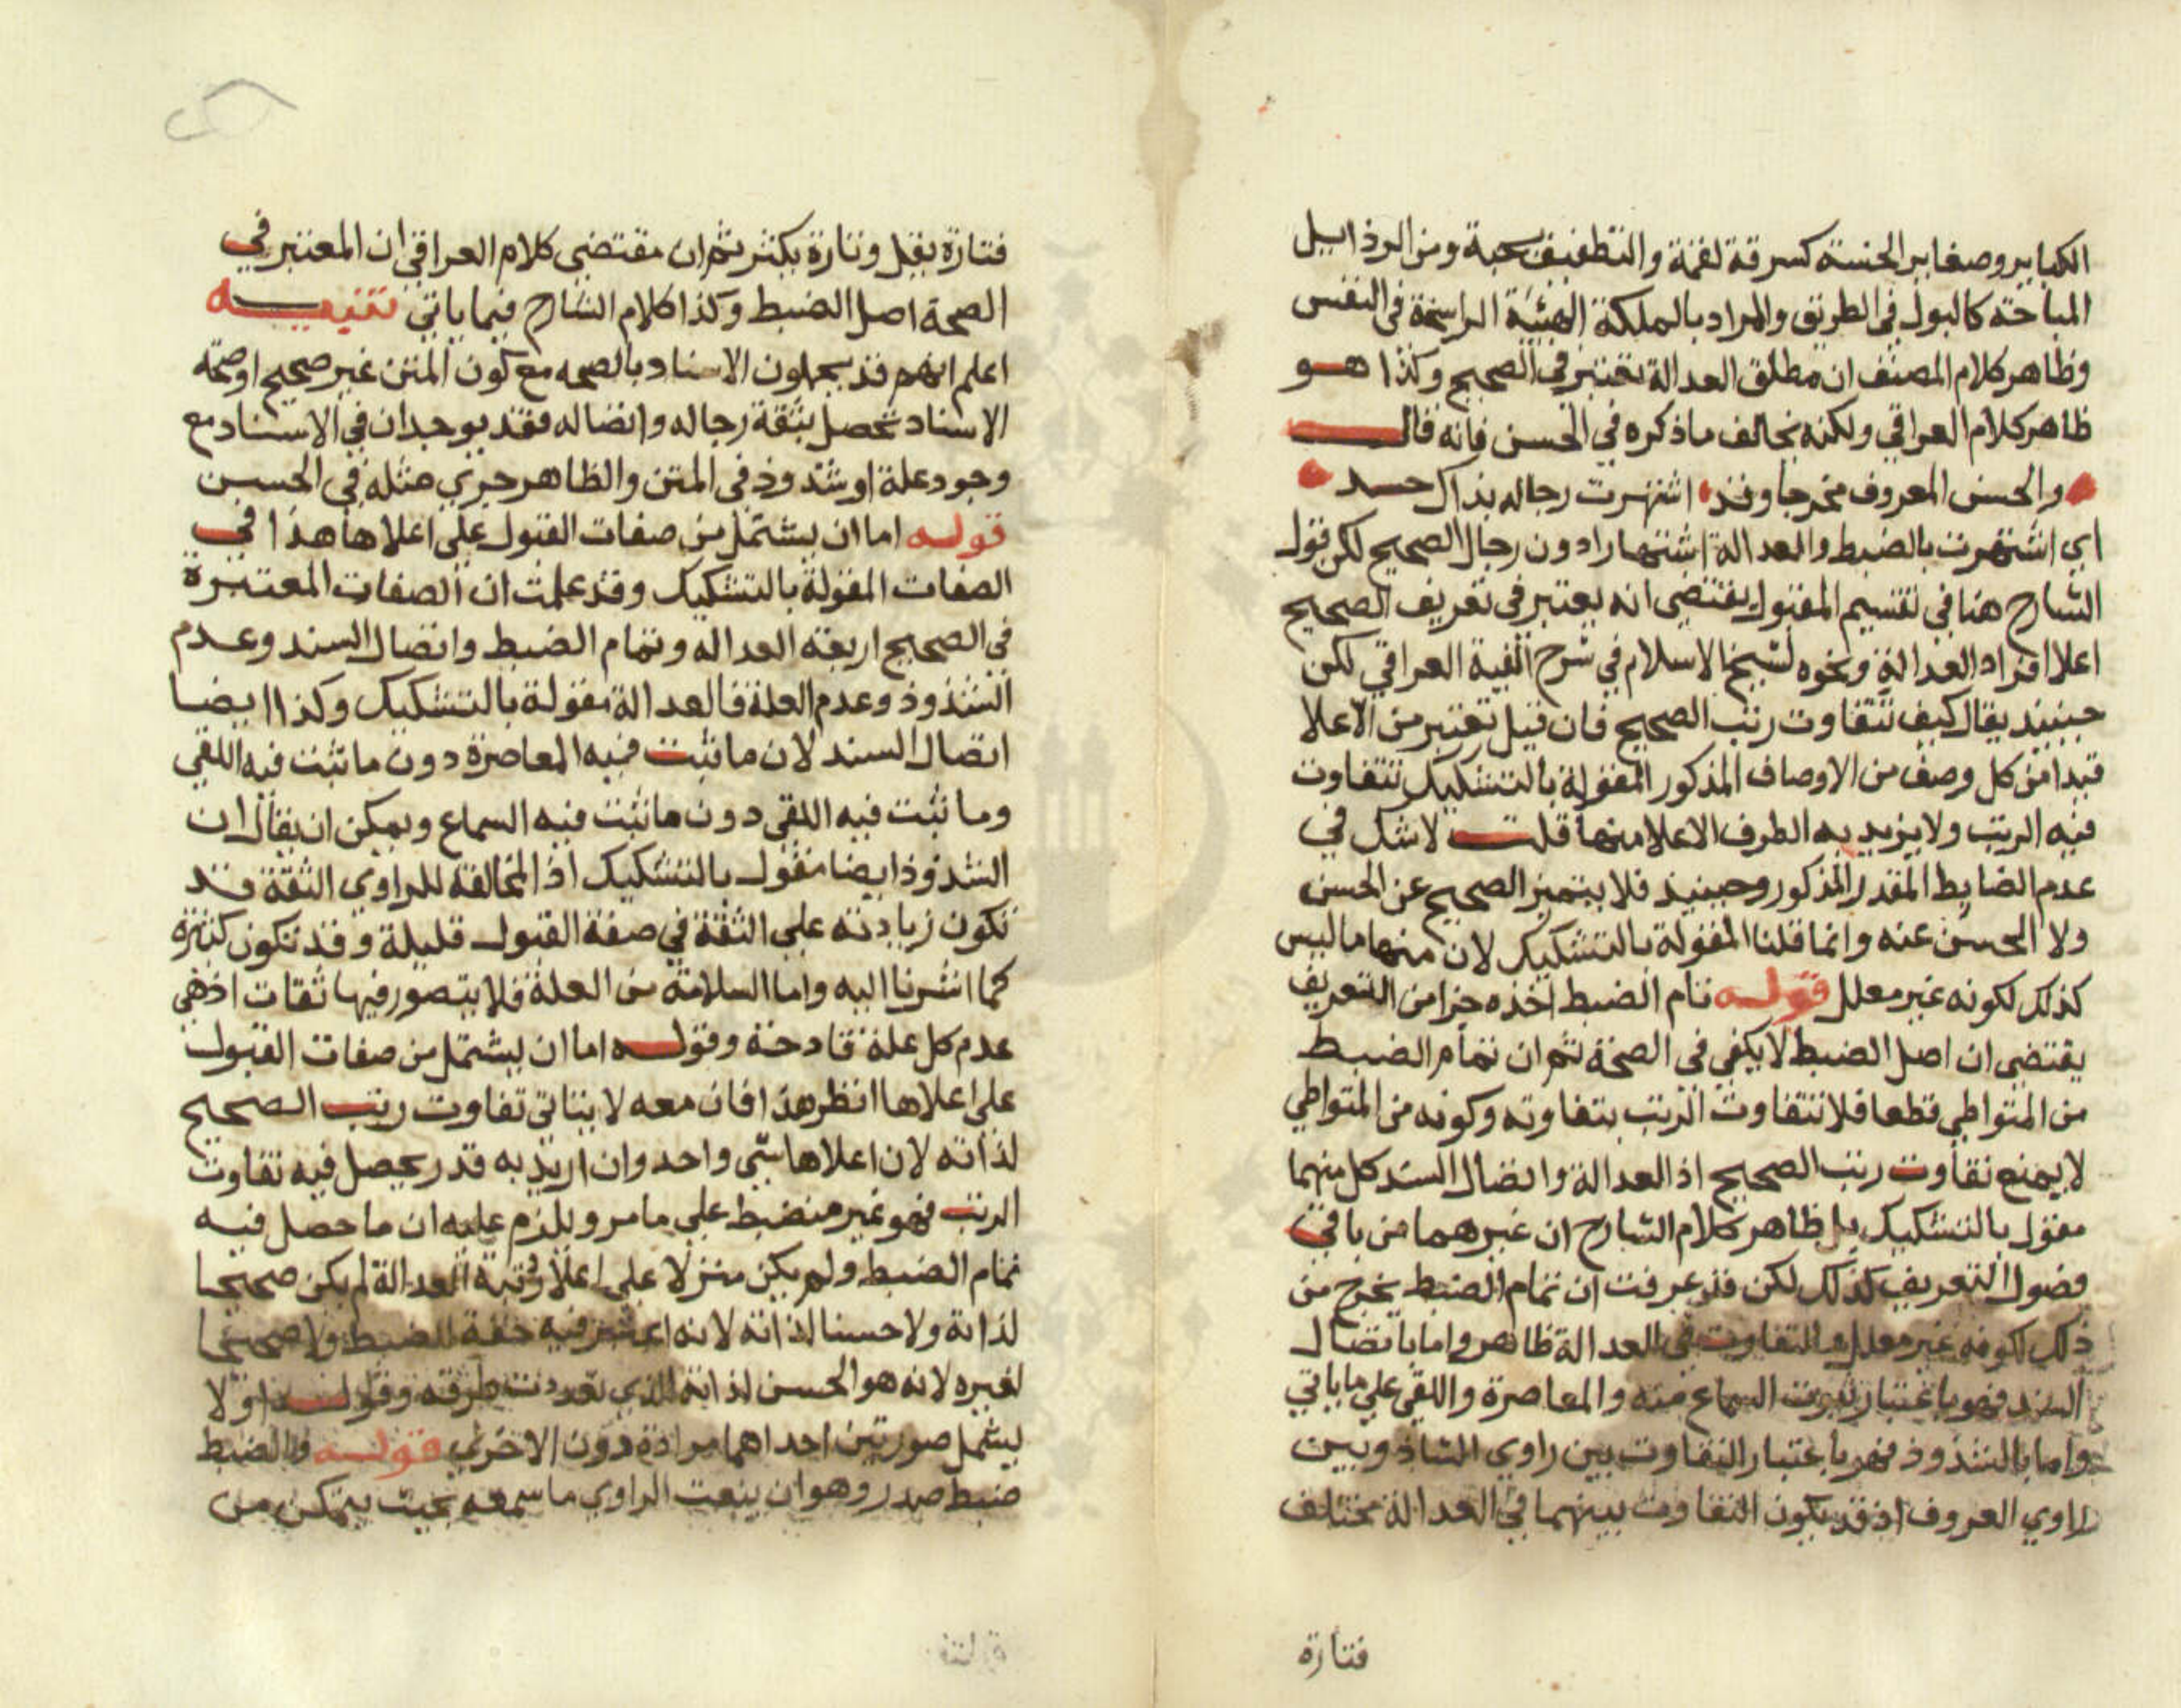 الكباير وصغاير الخسة كسرقة لقمة والتطفيف بحبة ومن الرذايل
المباحة كالبول في الطريق والمراد بالملكة الهيئة الراسخة في النفس
وظاهر كلام المصنف ان مطلق العدالة تعتبر في الصحيح وكذا هو
ظاهر كلام العراقي ولكنه يخالف ما ذكره في الحسن فانه قال
والحسن المعروف مخرجا وقد اشتهرت رجاله بذاك حد
اي اشتهرت بالضبط والعدالة اشتهارا دون رجال الصحيح لكن قول
الشارح هنا في تقسيم المقبول يقتضي انه يعتبر في تعريف الصحيح
اعلا افراد العدالة ونحوه لشيخ الاسلام في شرح الفية العراقي لكن
حينيذ يقال كيف تتفاوت رتب الصحيح فان قيل تعتبر من الاعلا
قيدا من كل وصف من الاوصاف المذكور المقولة بالتشكيك تتفاوت
فيه الرتب ولا يزيد به الطرف الاعلا منها قلت لا شك في
عدم الضابط المقدر المذكور وحينيذ فلا يتميز الصحيح عن الحسن
ولا الحسن عنه وانما قلنا المقولة بالتشكيك لان منها ما ليس
كذلك لكونه غير معلل قوله تام الضبط اخذه جزا من التعريف
يقتضي ان اصل الضبط لا يكفي في الصحة ثم ان تمام الضبط
من المتواطي قطعا فلا تتفاوت الرتب بتفاوته وكونه من المتواطي
لا يمنع تفاوت رتب الصحيح اذ العدالة واتصال السند كل منهما
مقول بالتشكيك بل ظاهر كلام الشارح ان غيرهما من باقي
فصول التعريف كذلك لكن قد عرفت ان تمام الضبط يخرج من
ذلك لكونه غير معلل والتفاوت في العدالة ظاهر واما باتصال
السند فهو باعتبار ثبوت السماع منه والمعاصرة واللقي على ما ياتي
واما بالشذوذ فهو باعتبار التفاوت بين راوي الشاذ وبين
راوي المعروف اذ قد يكون التفاوت بينهما في العدالة مختلف
فتارة
فتارة يقل وتارة يكثر ثم ان مقتضى كلام العراقي ان المعتبر في
الصحة اصل الضبط وكذا كلام الشارح فيما ياتي تنبيه
اعلم انهم قد يجعلون الاسناد بالصحه مع كون المتن غير صحيح او صحة
الاسناد تحصل بثقة رجاله واتصاله فقد يوجدان في الاسناد مع
وجود علة او شذوذ في المتن والظاهر جري مثله في الحسن
قوله اما ان يشتمل من صفات القبول على اعلاها هذا في
الصفات المقولة بالتشكيك وقد علمت ان الصفات المعتبرة
في الصحيح اربعة العدالة وتمام الضبط واتصال السند وعدم
الشذوذ وعدم العلة فالعدالة مقولة بالتشكيك وكذا ايضا
اتصال السند لان ما ثبت فيه المعاصرة دون ما ثبت فيه اللقي
وما ثبت فيه اللقي دون ما ثبت فيه السماع ويمكن ان يقال ان
الشذوذ ايضا مقول بالتشكيك اذ المخالفة للراوي الثقة قد
تكون زيادته على الثقة في صفة القبول قليلة وقد تكون كثيرة
كما اشرنا اليه واما السلامة من العلة فلا يتصور فيها ثقات اذ هي
عدم كل علة قادحة وقوله اما ان يشتمل من صفات القبول
على اعلاها انظر هذا فان معه لا يتاتى تفاوت رتب الصحيح
لذاته لان اعلاها شي واحد وان اريد به قدر يحصل فيه تفاوت
الرتب فهو غير منضبط على ما مر ويلزم عليه ان ما حصل فيه
تمام الضبط ولم يكن منزلا على اعلا رتبة العدالة لم يكن صحيحا
لذاته ولا حسنا لذاته لانه اعتبر فيه خفة الضبط ولا صحيحا
لغيره لانه هو الحسن لذاته الذي تعددت طرقه وقوله او لا
يشمل صورتين احداهما مرادة دون الاخرى قوله والضبط
ضبط صدر وهو ان يثبت الراوي ما سمعه بحيث يتمكن من